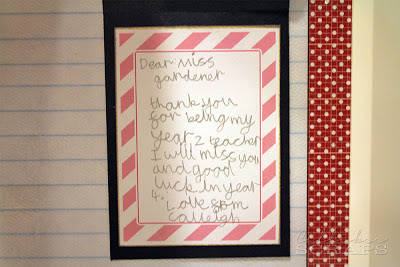 Dear Miss
gardener
thank you
for being my
year 2 teacher
I will miss you
and good
luck in year
4. Love from
Calleigh
SCRAPS